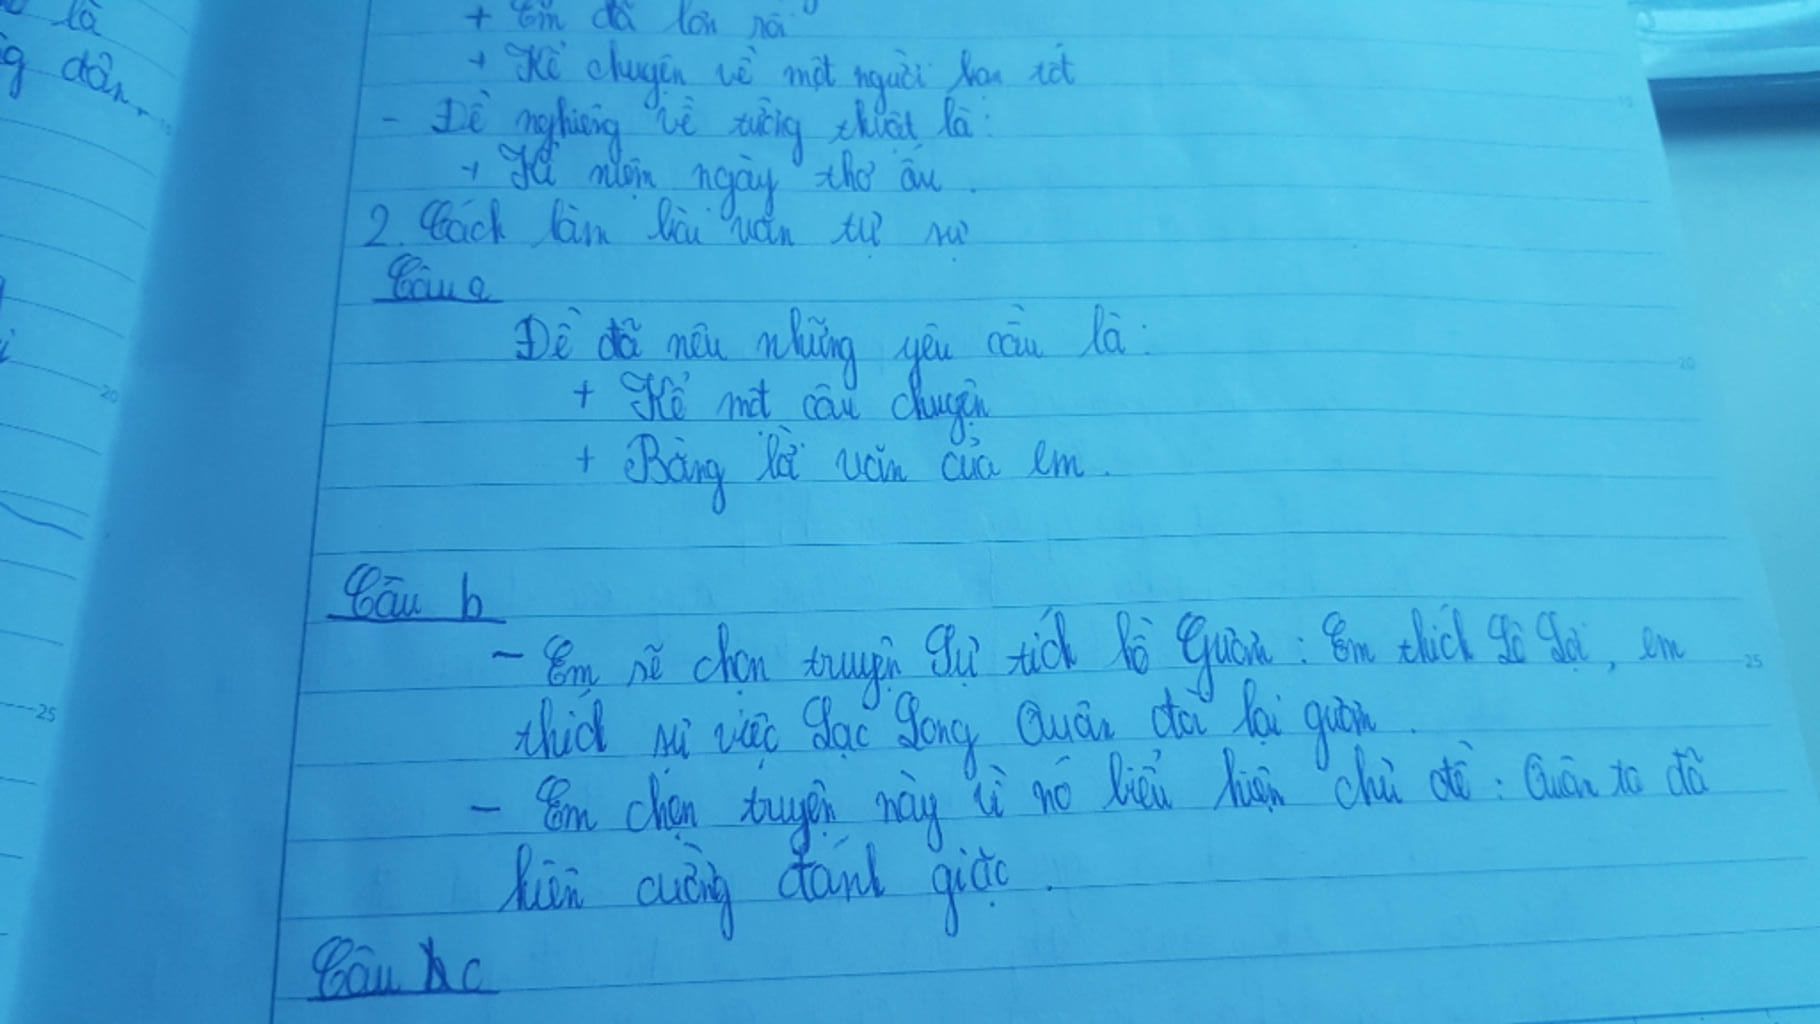 là
g dân.
+ Em đã lớn rồi
+ Kể chuyện về một người bạn tốt
- Đề nghiêng về tường thuật là:
+ Kỉ niệm ngày thơ ấu.
2. Cách làm bài văn tự sự
Câu a
Đề đã nêu những yêu cầu là:
+ Kể một câu chuyện
+ Bằng lời văn của em.
Câu b
- Em sẽ chọn truyện Sự tích hồ Gươm: Em thích Lê Lợi, em
thích sự việc Lạc Long Quân đòi lại gươm.
- Em chọn truyện này vì nó biểu hiện chủ đề: Quân ta đã
kiên cường đánh giặc.
Câu c
20
25
15
20
25